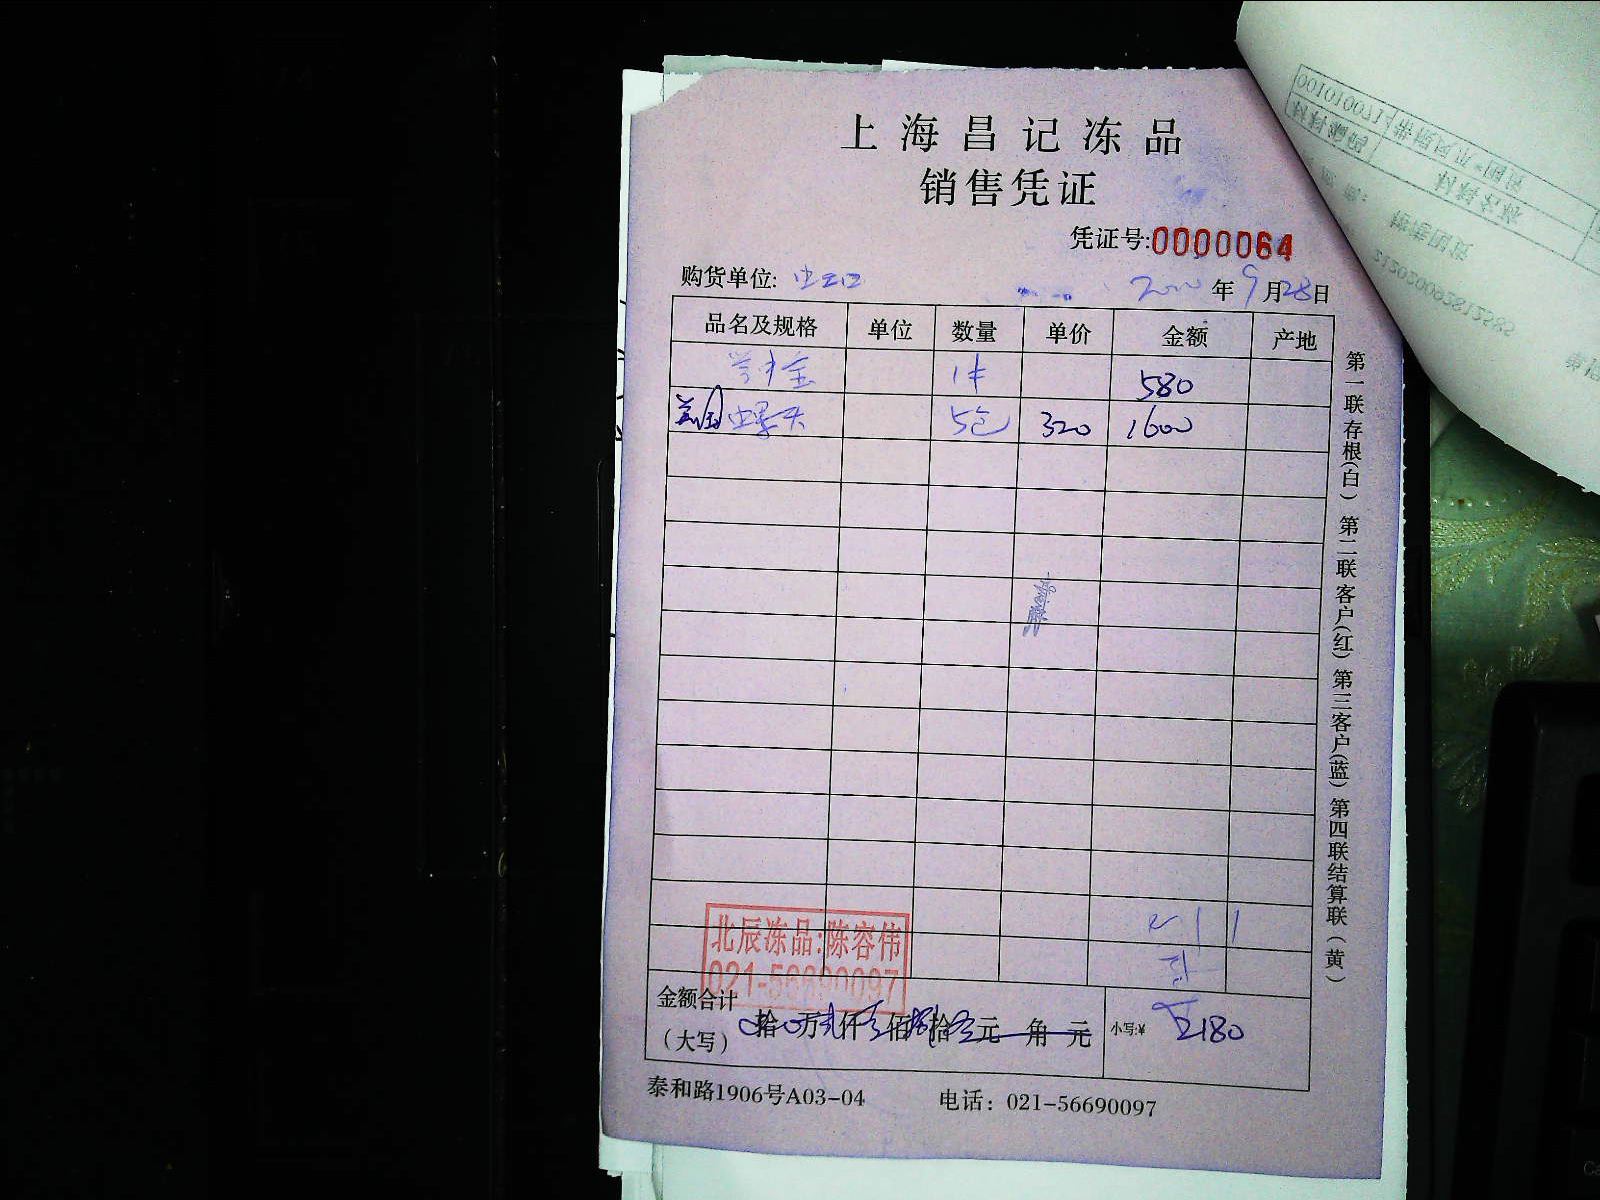 上海昌记冻品
销售凭证
凭证号:0000064
购货单位: 年9月28日
品名及规格 单位 数量 单价 金额 产地
1件 580
5包 320 1600
北辰冻品:陈容伟
021-56690097
金额合计
(大写) 拾 万 仟 佰 拾 元 角 元 小写:¥ 2180
泰和路1906号A03-04 电话: 021-56690097
第一联存根(白) 第二联客户(红) 第三客户(蓝) 第四联结算联(黄)